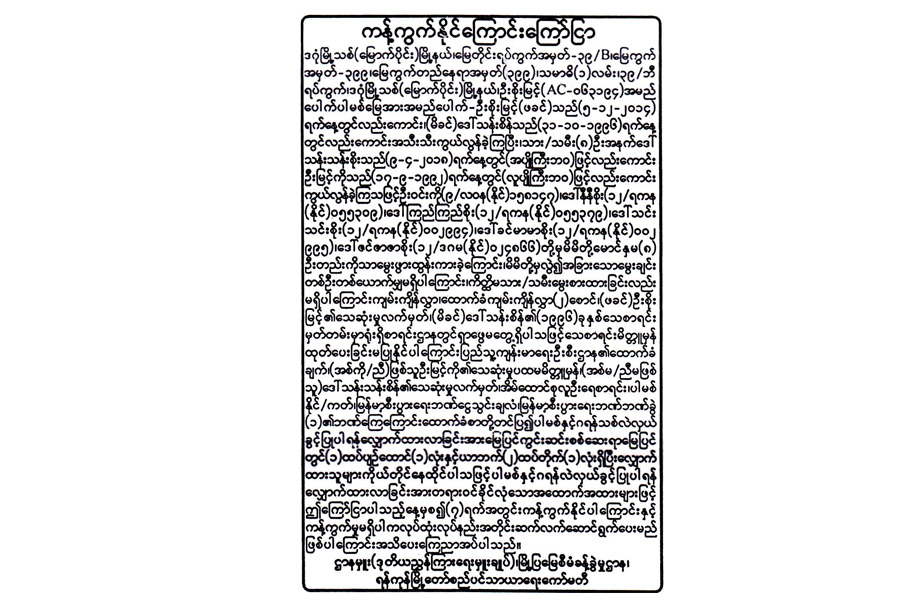 ကန့်ကွက်နိုင်ကြောင်းကြော်ငြာ
ဒဂုံမြို့သစ်(မြောက်ပိုင်း)မြို့နယ်၊မြေတိုင်းရပ်ကွက်အမှတ်-၃၉/B၊မြေကွက်
အမှတ်-၃၉၉၊မြေကွက်တည်နေရာအမှတ်(၃၉၉)၊သမာဓိ(၁)လမ်း၊၃၉/ဘီ
ရပ်ကွက်၊ဒဂုံမြို့သစ်(မြောက်ပိုင်း)မြို့နယ်၊ဦးစိုးမြင့်(AC-၀၆၃၁၉၄)အမည်
ပေါက်ပါမစ်မြေအားအမည်ပေါက်-ဦးစိုးမြင့်(ဖခင်)သည်(၅-၁၂-၂၀၁၄)
ရက်နေ့တွင်လည်းကောင်း၊(မိခင်)ဒေါ်သန်းစိန်သည်(၃၁-၁၀-၁၉၉၆)ရက်နေ့
တွင်လည်းကောင်းအသီးသီးကွယ်လွန်ခဲ့ကြပြီး၊သား/သမီး(၈)ဦးအနက်ဒေါ်
သန်းသန်းစိုးသည်(၉-၄-၂၀၁၈)ရက်နေ့တွင်(အပျိုကြီးဘဝ)ဖြင့်လည်းကောင်း
ဦးမြင့်ကိုသည်(၁၇-၉-၁၉၉၂)ရက်နေ့တွင်(လူပျိုကြီးဘဝ)ဖြင့်လည်းကောင်း
ကွယ်လွန်ခဲ့ကြသဖြင့်ဦးဝင်းကို(၉/လဝန(နိုင်)၁၅၈၁၄၇)၊ဒေါ်နီနီစိုး(၁၂/ရကန
(နိုင်)၀၅၅၃၀၉)၊ဒေါ်ကြည်ကြည်စိုး(၁၂/ရကန(နိုင်)၀၅၅၃၇၉)၊ဒေါ်သင်း
သင်းစိုး(၁၂/ရကန(နိုင်)၀၀၂၉၉၄)၊ဒေါ်ခင်မာမာစိုး(၁၂/ရကန(နိုင်)၀၀၂
၉၉၅)၊ဒေါ်ဇင်ဇာဇာစိုး(၁၂/ဒဂမ(နိုင်)၀၂၄၈၆၆)တို့မှမိမိတို့မောင်နှမ(၈)
ဦးတည်းကိုသာမွေးဖွားထွန်းကားခဲ့ကြောင်း၊မိမိတို့မှလွဲ၍အခြားသောမွေးချင်း
တစ်ဦးတစ်ယောက်မျှမရှိပါကြောင်း၊ကိတ္တိမသား/သမီးမွေးစားထားခြင်းလည်း
မရှိပါကြောင်းကျမ်းကျိန်လွှာ၊ထောက်ခံကျမ်းကျိန်လွှာ(၂)စောင်၊(ဖခင်)ဦးစိုး
မြင့်၏သေဆုံးမှုလက်မှတ်၊(မိခင်)ဒေါ်သန်းစိန်၏(၁၉၉၆)ခုနှစ်သေစာရင်း
မှတ်တမ်းမှာရုံးရှိစာရင်းဌာနတွင်ရှာဖွေမတွေ့ရှိပါသဖြင့်သေစာရင်းမိတ္တူမှန်
ထုတ်ပေးခြင်းမပြုနိုင်ပါကြောင်းပြည်သူ့ကျန်းမာရေးဦးစီးဌာန၏ထောက်ခံ
ချက်၊(အစ်ကို/ညီ)ဖြစ်သူဦးမြင့်ကို၏သေဆုံးမှုပထမမိတ္တူမှန်၊(အစ်မ/ညီမဖြစ်
သူ)ဒေါ်သန်းသန်းစိန်၏သေဆုံးမှုလက်မှတ်၊အိမ်ထောင်စုလူဦးရေစာရင်း၊ပါမစ်
နိုင်/ကတ်၊မြန်မာ့စီးပွားရေးဘဏ်ငွေသွင်းချလံ၊မြန်မာ့စီးပွားရေးဘဏ်ဘဏ်ခွဲ
(၁)၏ဘဏ်ကြေကြောင်းထောက်ခံစာတို့တင်ပြ၍ပါမစ်နှင့်ဂရန်သစ်လဲလှယ်
ခွင့်ပြုပါရန်လျှောက်ထားလာခြင်းအားမြေပြင်ကွင်းဆင်းစစ်ဆေးရာမြေပြင်
တွင်(၁)ထပ်ပျဉ်ထောင်(၁)လုံးနှင့်ယာဘက်(၂)ထပ်တိုက်(၁)လုံးရှိပြီးလျှောက်
ထားသူများကိုယ်တိုင်နေထိုင်ပါသဖြင့်ပါမစ်နှင့်ဂရန်လဲလှယ်ခွင့်ပြုပါရန်
လျှောက်ထားလာခြင်းအားတရားဝင်ခိုင်လုံသောအထောက်အထားများဖြင့်
ဤကြော်ငြာပါသည့်နေ့မှစ၍(၇)ရက်အတွင်းကန့်ကွက်နိုင်ပါကြောင်းနှင့်
ကန့်ကွက်မှုမရှိပါကလုပ်ထုံးလုပ်နည်းအတိုင်းဆက်လက်ဆောင်ရွက်ပေးမည်
ဖြစ်ပါကြောင်းအသိပေးကြေညာအပ်ပါသည်။
ဌာနမှူး(ဒုတိယညွှန်ကြားရေးမှူးချုပ်)၊မြို့ပြမြေစီမံခန့်ခွဲမှုဌာန၊
ရန်ကုန်မြို့တော်စည်ပင်သာယာရေးကော်မတီ